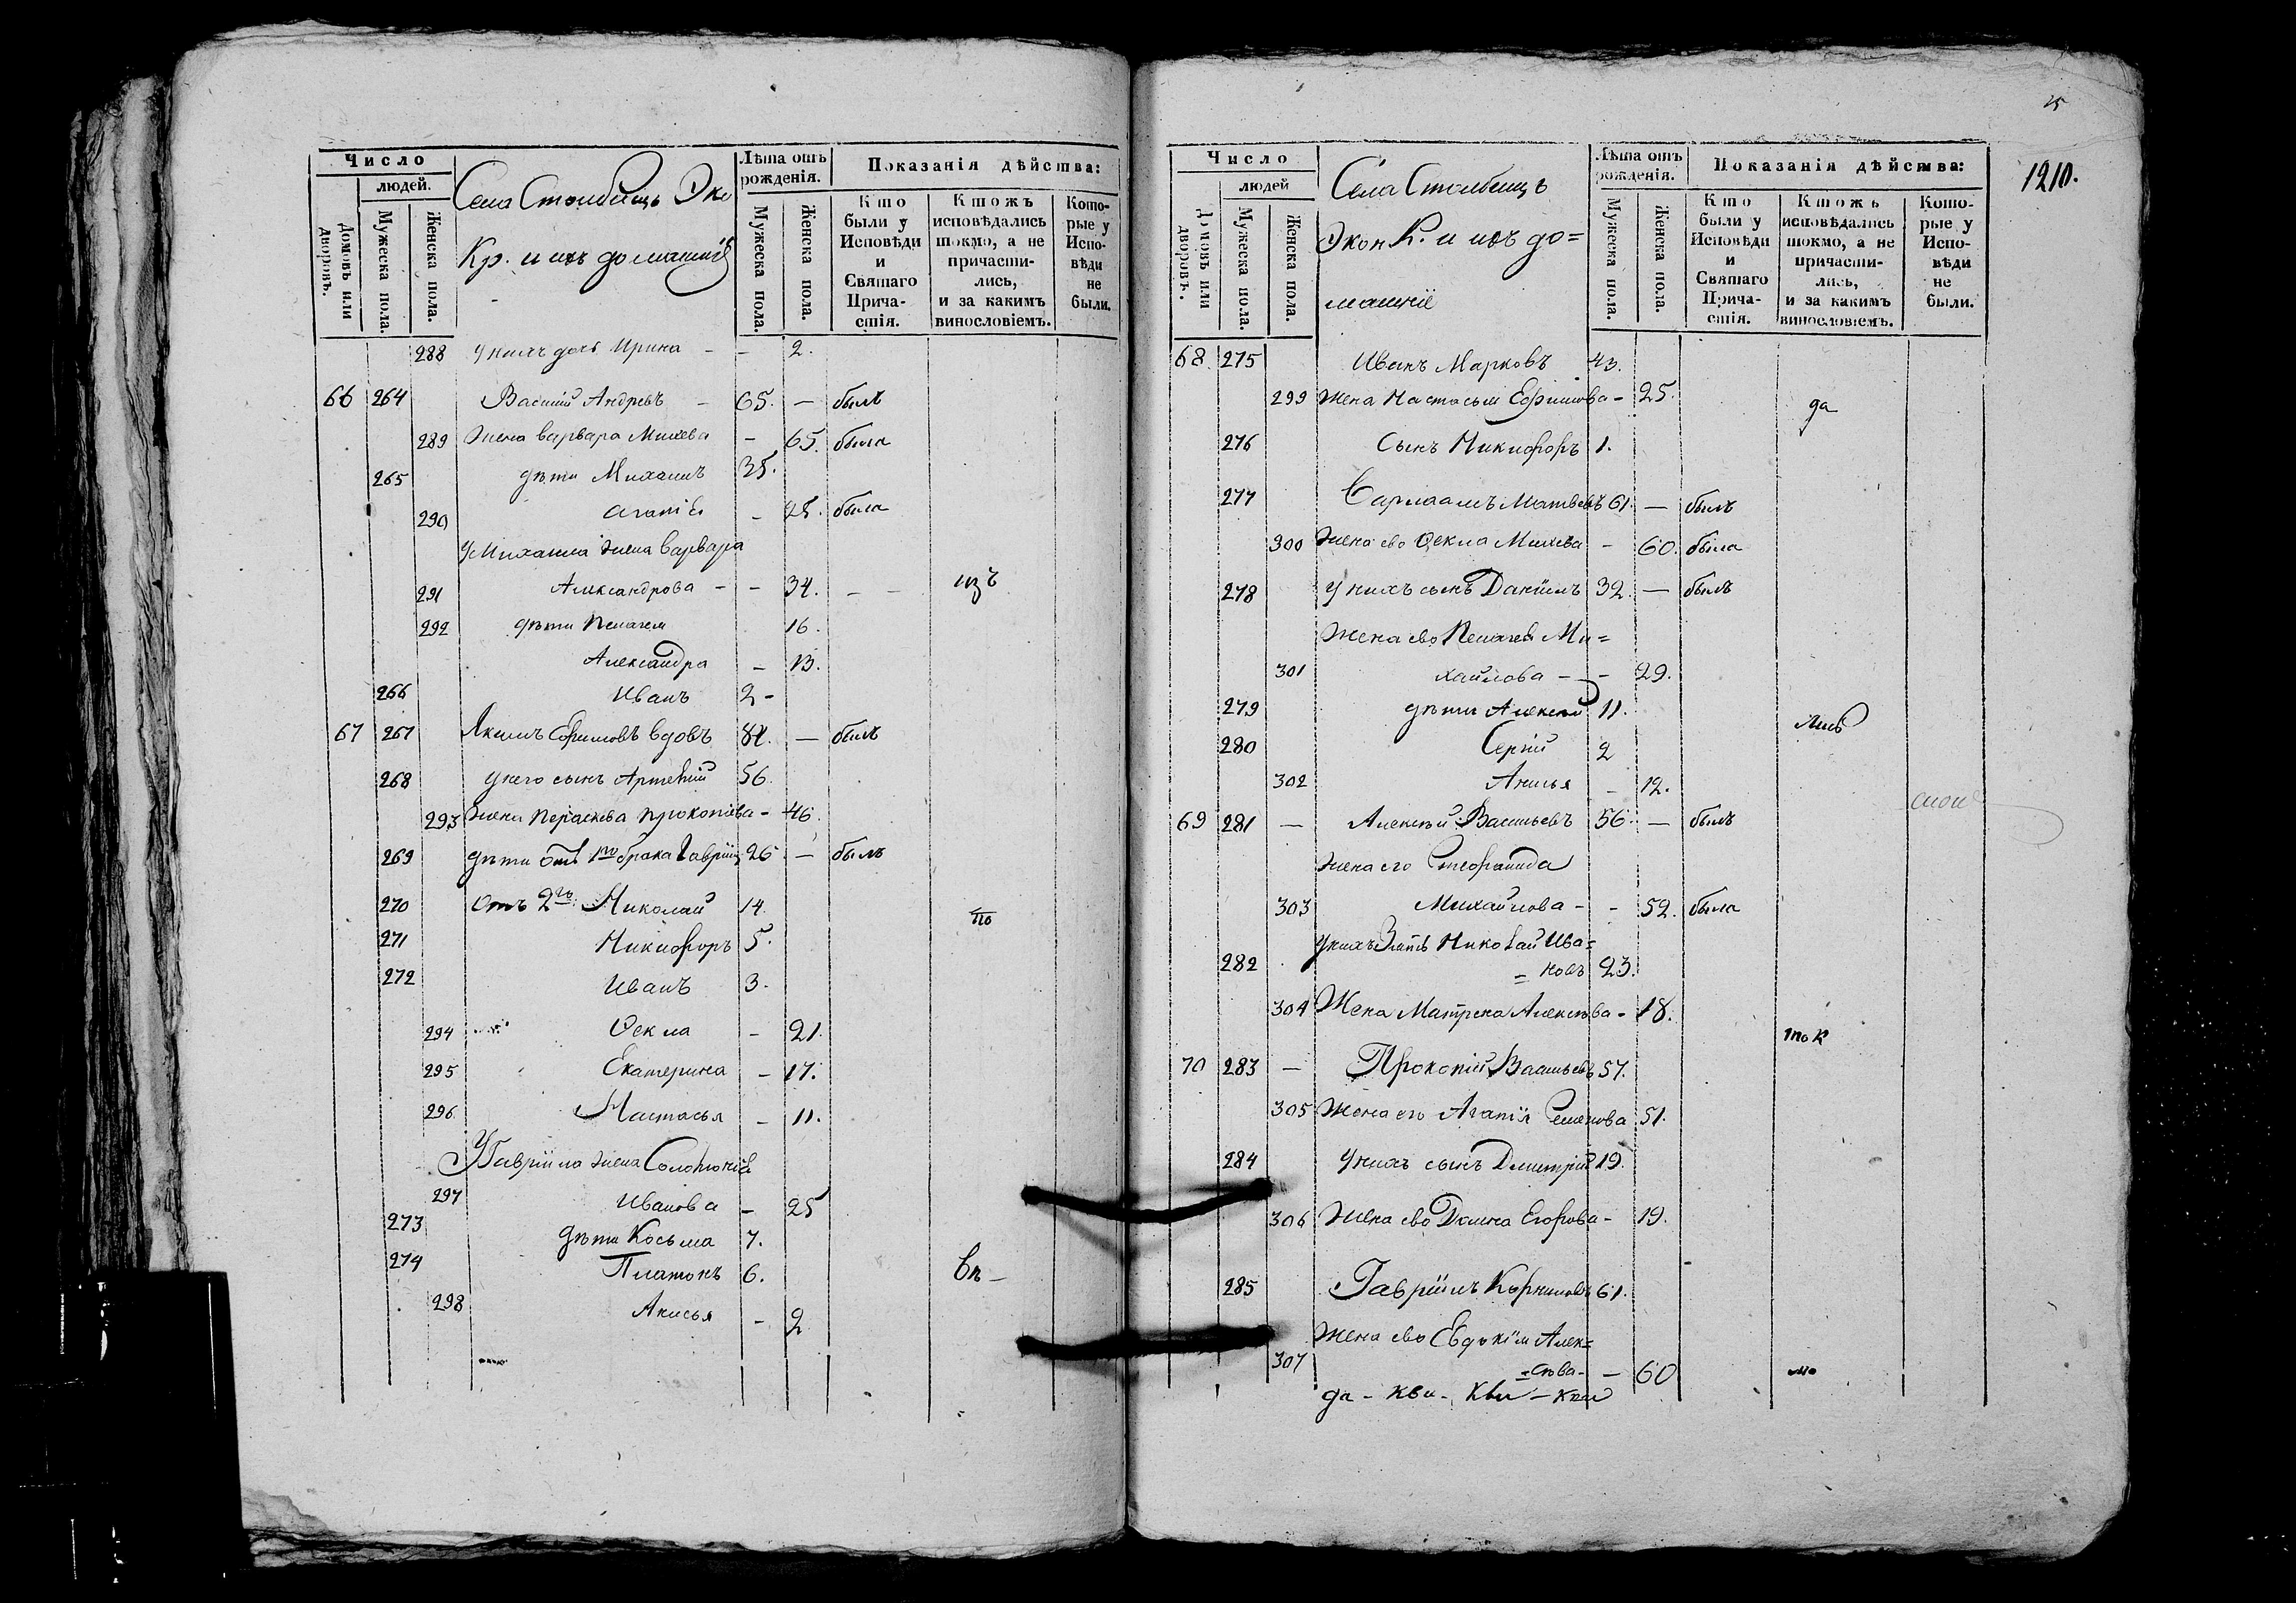 Число
людей.
Домовъ или дворовъ.
Мужеска пола.
Женска пола.
Села Столбищъ Эко
Кр. и ихъ домашнїе
Лѣта отъ рожденія.
Мужеска пола.
Женска пола.
Показанія дѣйства:
Кто были у Исповѣди и Святаго Прича-стія.
Ктожъ исповѣдались токмо, а не причасти-лись, и за какимъ винословіемъ.
Кото-рые у Испо-вѣди не были.
288 у нихъ дочь Ирина - - 2.
66 264 Василий Андревъ - 65. - былъ
289 Жена варвара Михева - 65. была
265 дѣти Михаилъ 35.
290 Агапїя - 28. была
У Михаила жена варвара
291 Александрова - - 34. - - изъ
292 дѣти Пелагея 16.
Александра - 13.
266 Иванъ 2 -
67 267 Яким Ефимовъ вдовъ 84. - былъ
268 у него сынъ Артемий 56.
293 Жена Параскева прокопїева - 46.
269 дѣти отъ 1го брака Гаврїил 26 - былъ
270 Отъ 2го: Николай 14. то
271 Никифоръ 5.
272 Иванъ 3.
294 Ѳекла - 21.
295 Екатерина - 17.
296 Настасья - 11.
У Гаврїила жена Соломонїя
297 Иванова - 25
273 Дѣти Косьма 7.
274 Платонъ 6. въ -
298 Анисья - 2
25
1210.
Число
людей
Домовъ или дворовъ.
Мужеска пола.
Женска пола.
Села Столбищъ
Экон К. и ихъ до=
машнїе
Лѣта отъ рожденія.
Мужеска пола.
Женска пола.
Показанія дѣйства:
Кто были у Исповѣди и Святаго Прича-стія.
Ктожъ исповѣдались токмо, а не причасти-лись, и за какимъ винословіемъ.
Кото-рые у Испо-вѣди не были.
68. 275 Иванъ Марковъ 43.
299 Жена Настасья Ефимова - 25. да
276 Сынъ Никифоръ 1.
277 Варлаамъ Матвевъ 61. - былъ
300 Жена ево Ѳекла Михева - 60. была
278 у нихъ сынъ Данїилъ 32. - былъ
Жена ево Пелагея Ми=
301 хайлова - - 29.
279 дѣти Алексей 11.
280 Сергїй 2
302 Анисья - 12.
69 281 - Алексѣй Васильевъ 56. - былъ
Жена его Стефанида
303 Михайлова - - 52. была
у нихъ Зять Николай Ива=
282 = новъ 23.
304 Жена Матрена Алексѣва - 18.
ток
70 283 - Прокопїй Васильевъ 57.
305 Жена его Агапїя Семенова 51.
284 у нихъ сынъ Дмитрїй 19.
306 Жена ево Домна Егорова - 19.
285 Гаврїилъ Корниловъ 61.
Жена ево Евдокїя Алек=
307 =сѣва - - 60 мо